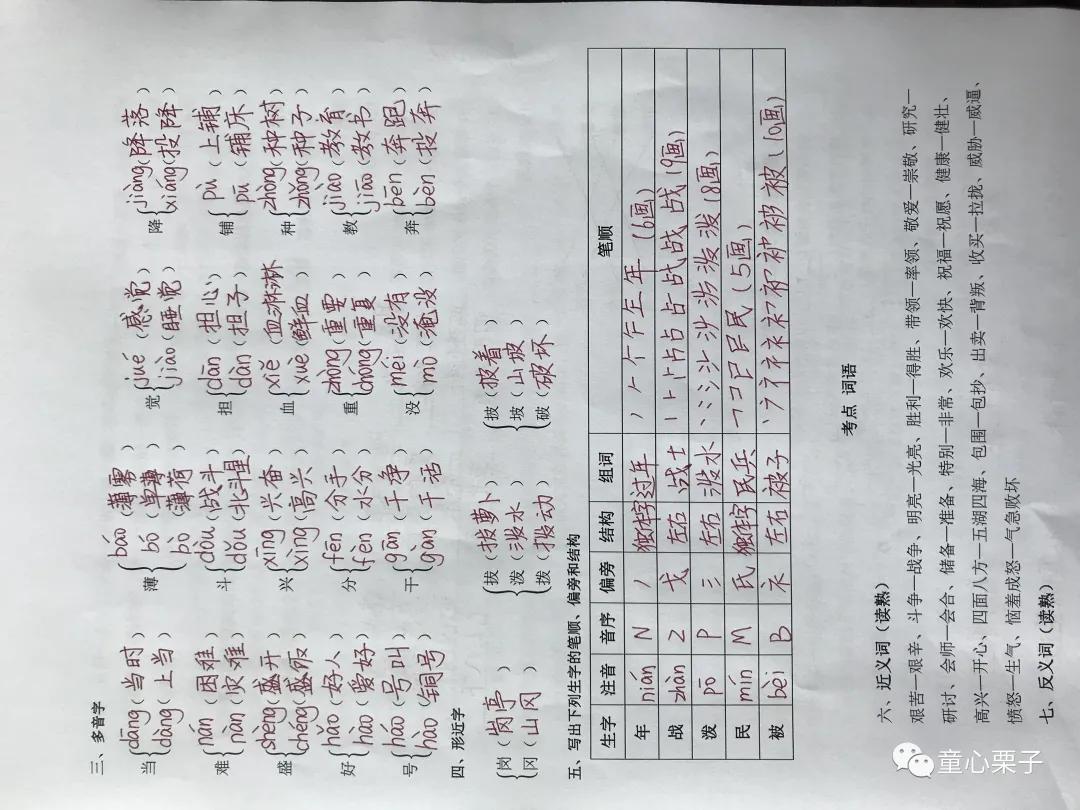 三、多音字
当{dāng(当时) dàng(上当)
薄{báo(薄雾) bó(单薄) bò(薄荷)
觉{jué(感觉) jiào(睡觉)
降{jiàng(降落) xiáng(投降)
难{nán(困难) nàn(灾难)
斗{dòu(战斗) dǒu(北斗星)
担{dān(担心) dàn(担子)
铺{pù(上铺) pū(铺床)
盛{shèng(盛开) chéng(盛饭)
兴{xīng(兴奋) xìng(高兴)
血{xiě(血淋淋) xuè(鲜血)
种{zhòng(种树) zhǒng(种子)
好{hǎo(好人) hào(爱好)
分{fēn(分手) fèn(水分)
重{zhòng(重要) chóng(重复)
教{jiào(教育) jiāo(教书)
号{háo(号叫) hào(铜号)
干{gān(干净) gàn(干活)
没{méi(没有) mò(淹没)
奔{bēn(奔跑) bèn(投奔)
四、形近字
{岗(岗亭) 冈(山冈)
{拔(拔萝卜) 泼(泼水) 拨(拨动)
{披(披着) 坡(山坡) 破(破坏)
五、写出下列生字的笔顺、偏旁和结构
生字 注音 音序 偏旁 结构 组词 笔顺
年 nián N 丿 独体字 过年 (6画)
战 zhàn Z 戈 左右 战士 (9画)
泼 pō P 氵 左右 泼水 (8画)
民 mín M 氏 独体字 民兵 (5画)
被 bèi B 衤 左右 被子 (10画)
考点 词语
六、近义词(读熟)
艰苦—艰辛、斗争—战争、明亮—光亮、胜利—得胜、带领—率领、敬爱—崇敬、研究—
研讨、会师—会合、储备—准备、特别—非常、欢乐—欢快、祝福—祝愿、健康—健壮、
高兴—开心、四面八方—五湖四海、包围—包抄、出卖—背叛、收买—拉拢、威胁—威逼、
愤怒—生气、恼羞成怒—气急败坏
七、反义词(读熟)
童心栗子